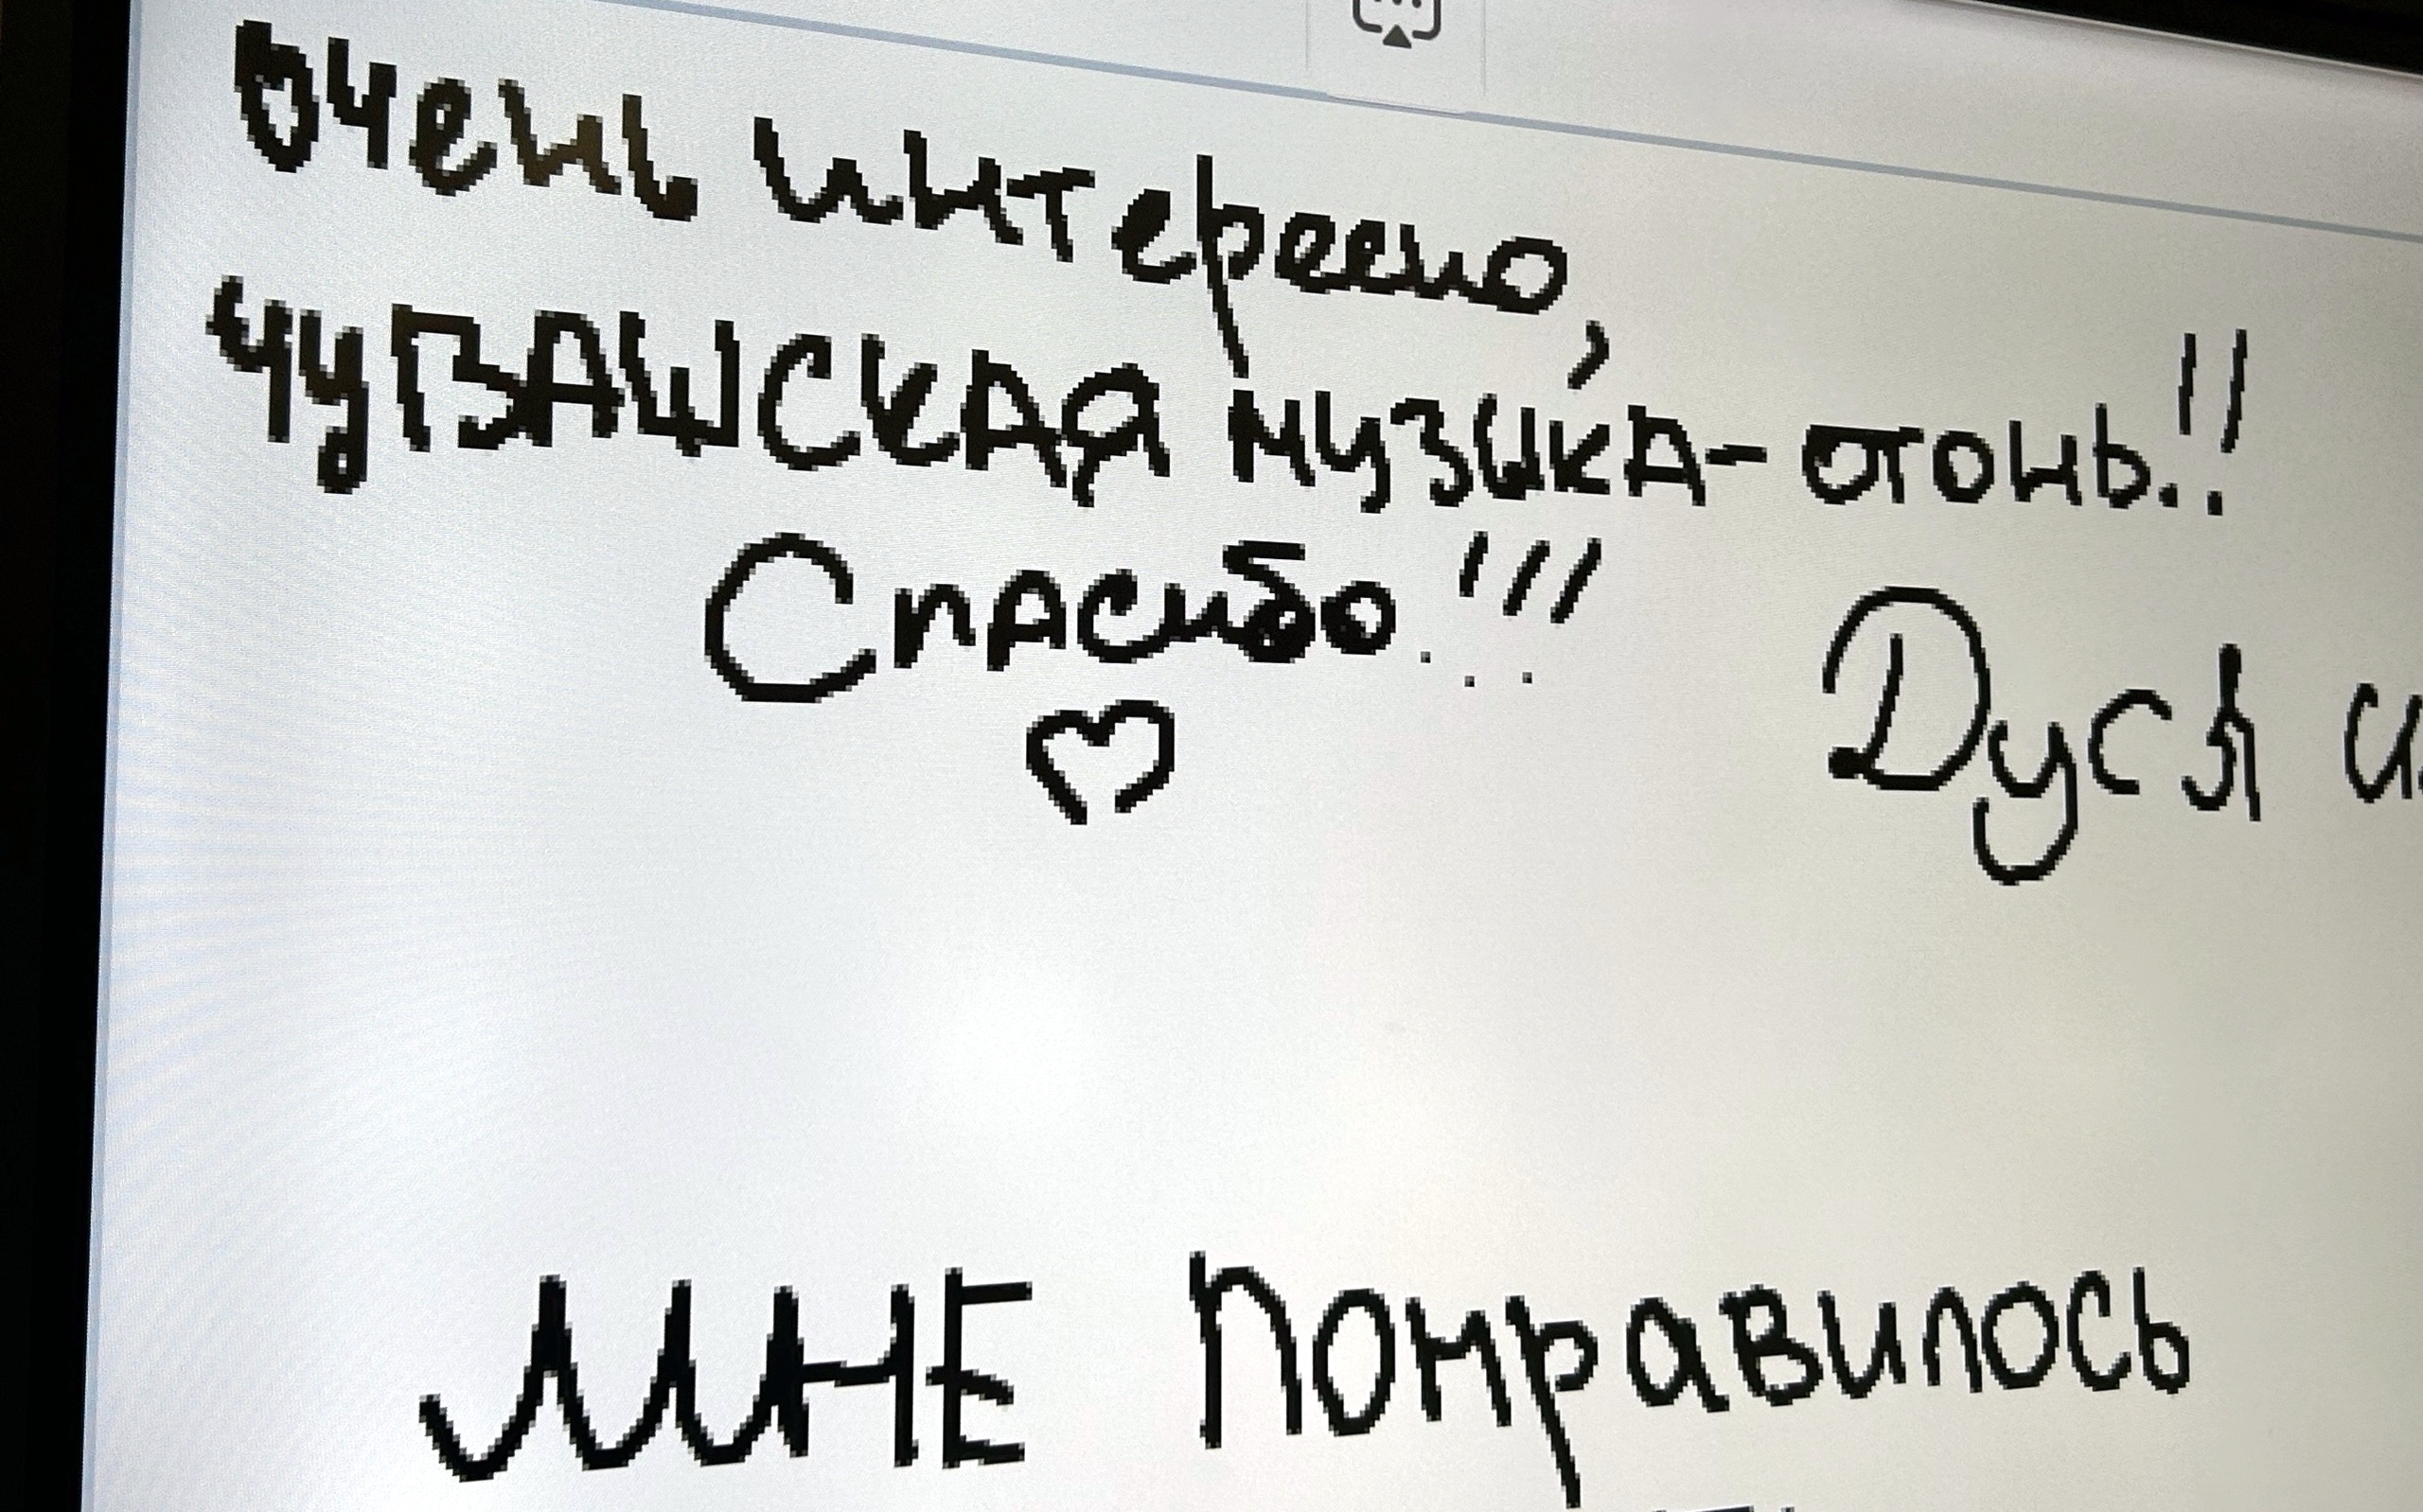 очень интересно,
чувашская музыка - огонь!!
Спасибо!!!
Дуся и
мне понравилось